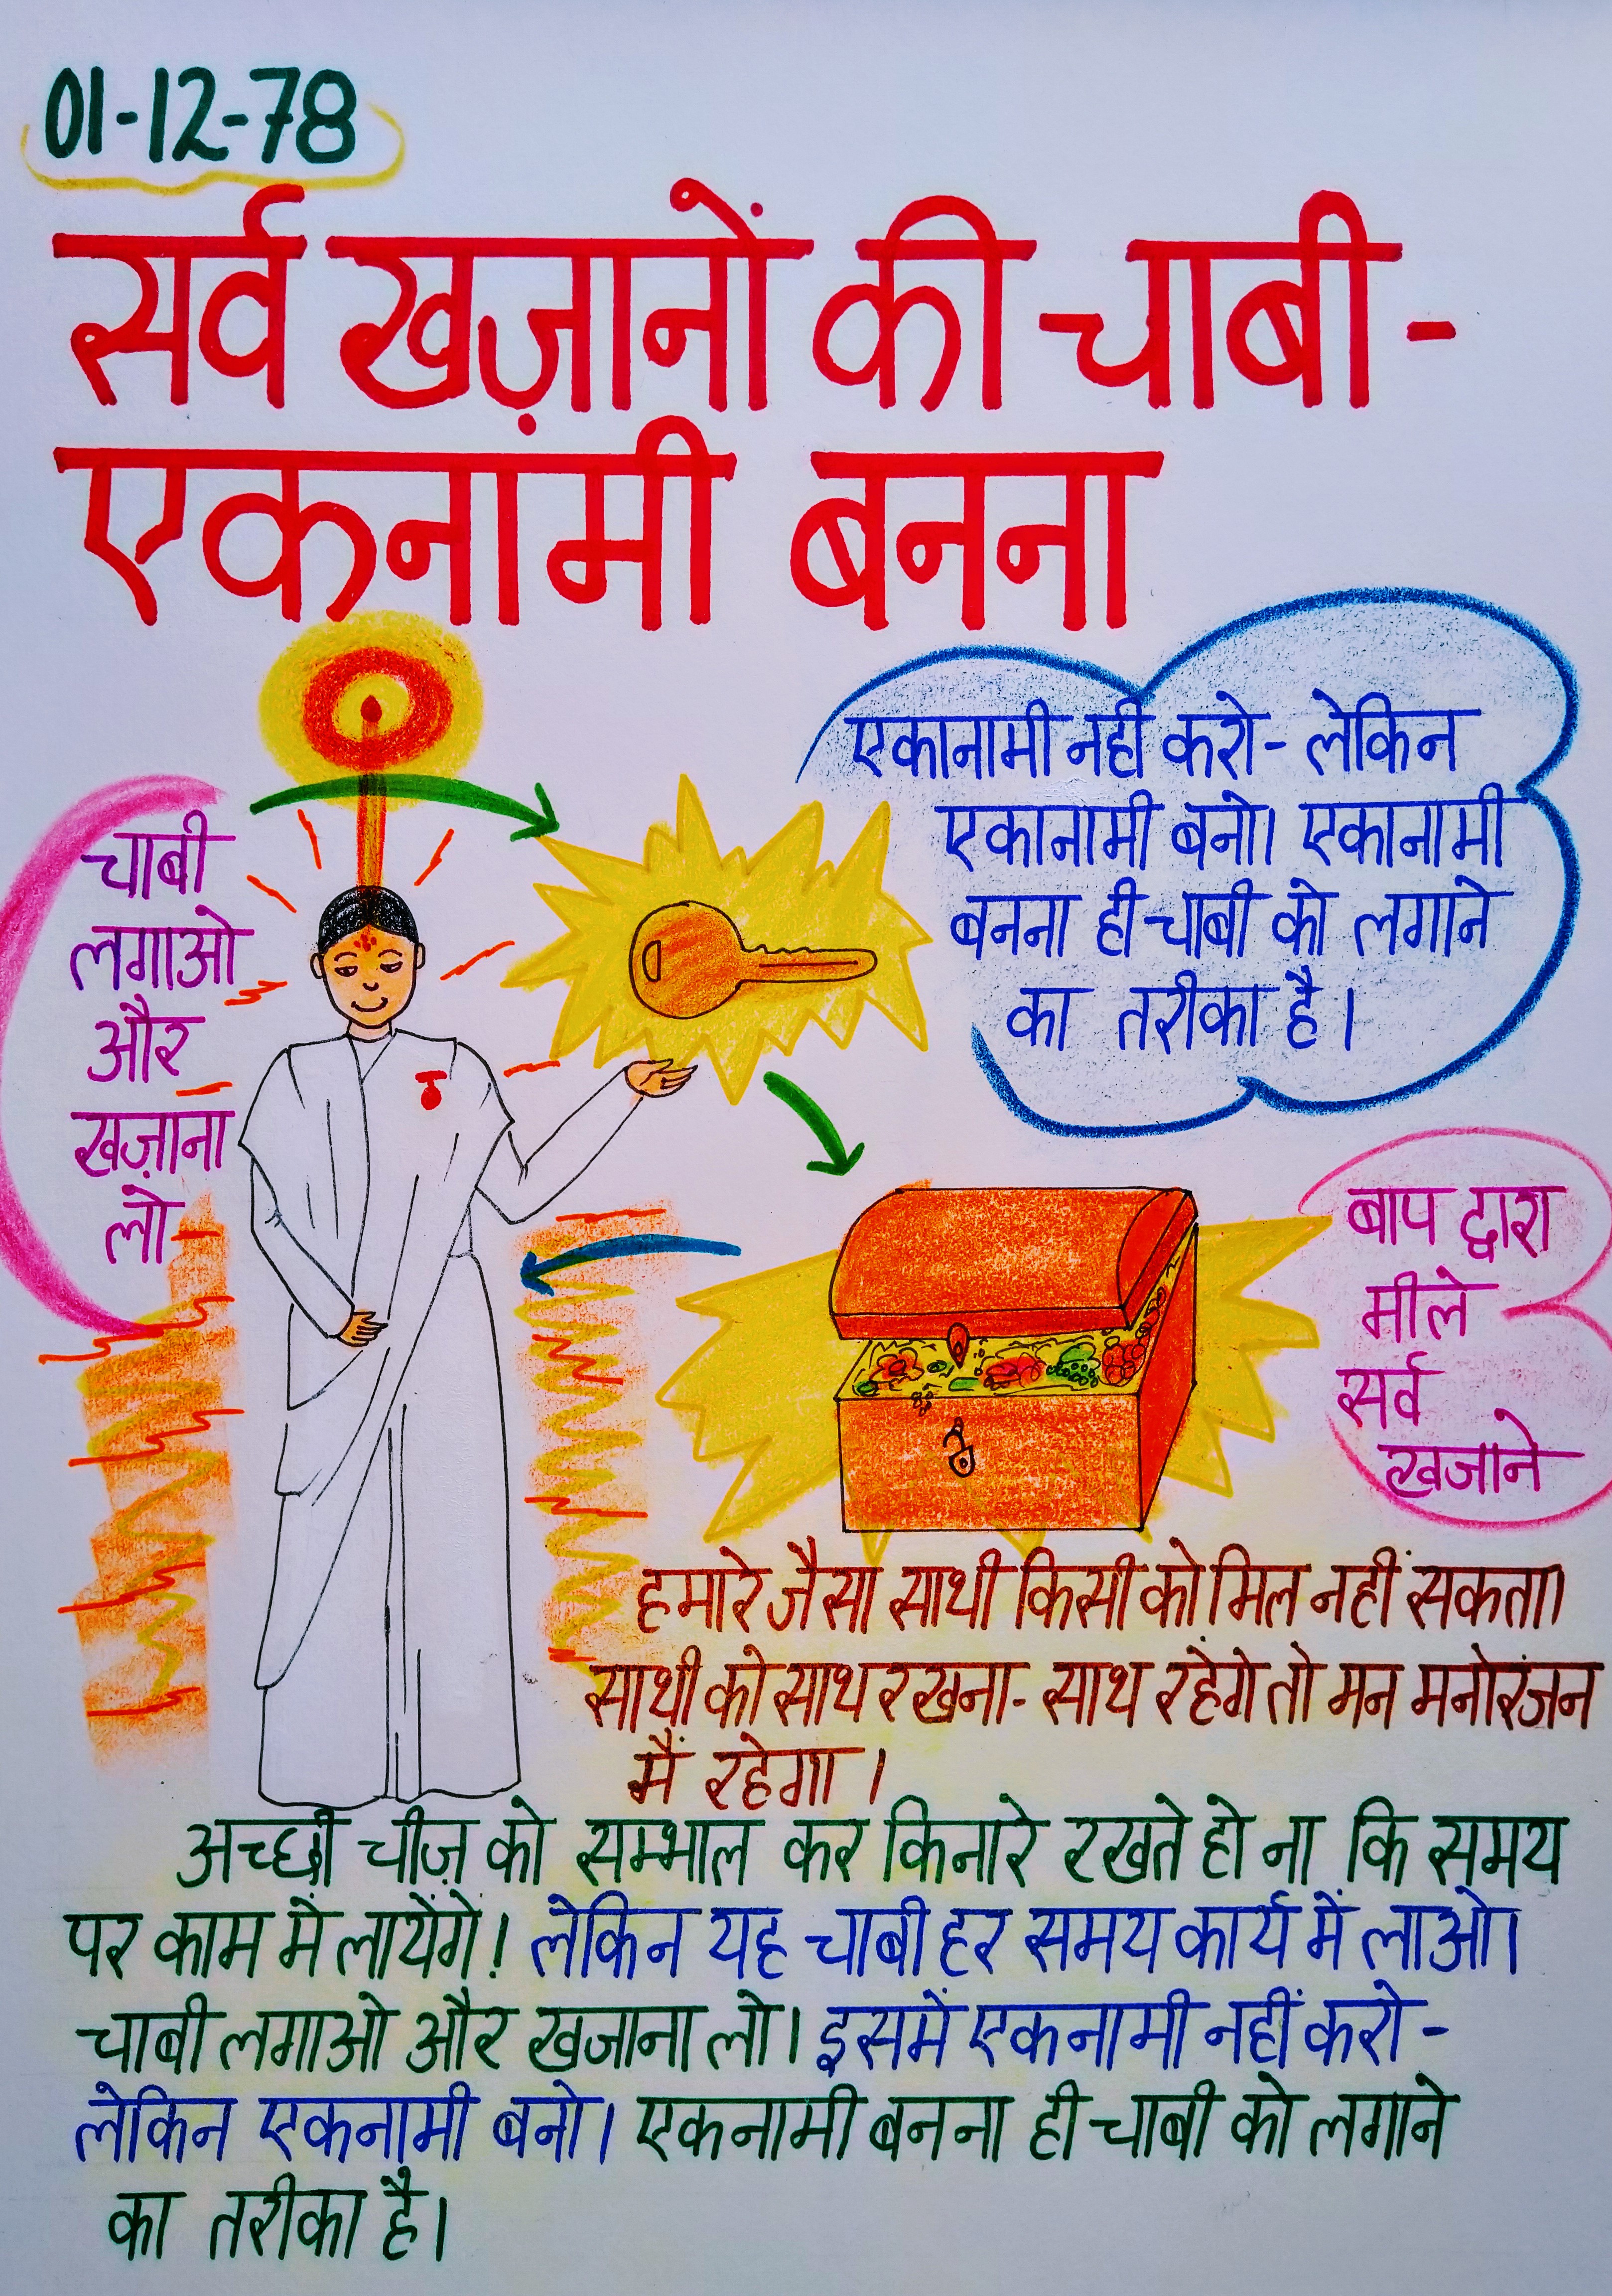 01-12-78
सर्व खज़ानों की चाबी -
एकनामी बनना
एकानामी नही करो - लेकिन
एकानामी बनो। एकानामी
बनना ही चाबी को लगाने
का तरीका है।
चाबी
लगाओ
और
खज़ाना
लो
बाप द्वारा
मीले
सर्व
खजाने
हमारे जैसा साथी किसी को मिल नहीं सकता।
साथी को साथ रखना - साथ रहेंगे तो मन मनोरंजन
मैं रहेगा।
अच्छी चीज़ को सम्भाल कर किनारे रखते हो ना कि समय
पर काम में लायेंगें! लेकिन यह चाबी हर समय कार्य में लाओ।
चाबी लगाओ और खजाना लो। इसमें एकनामी नहीं करो -
लेकिन एकनामी बनो। एकनामी बनना ही चाबी को लगाने
का तरीका है।